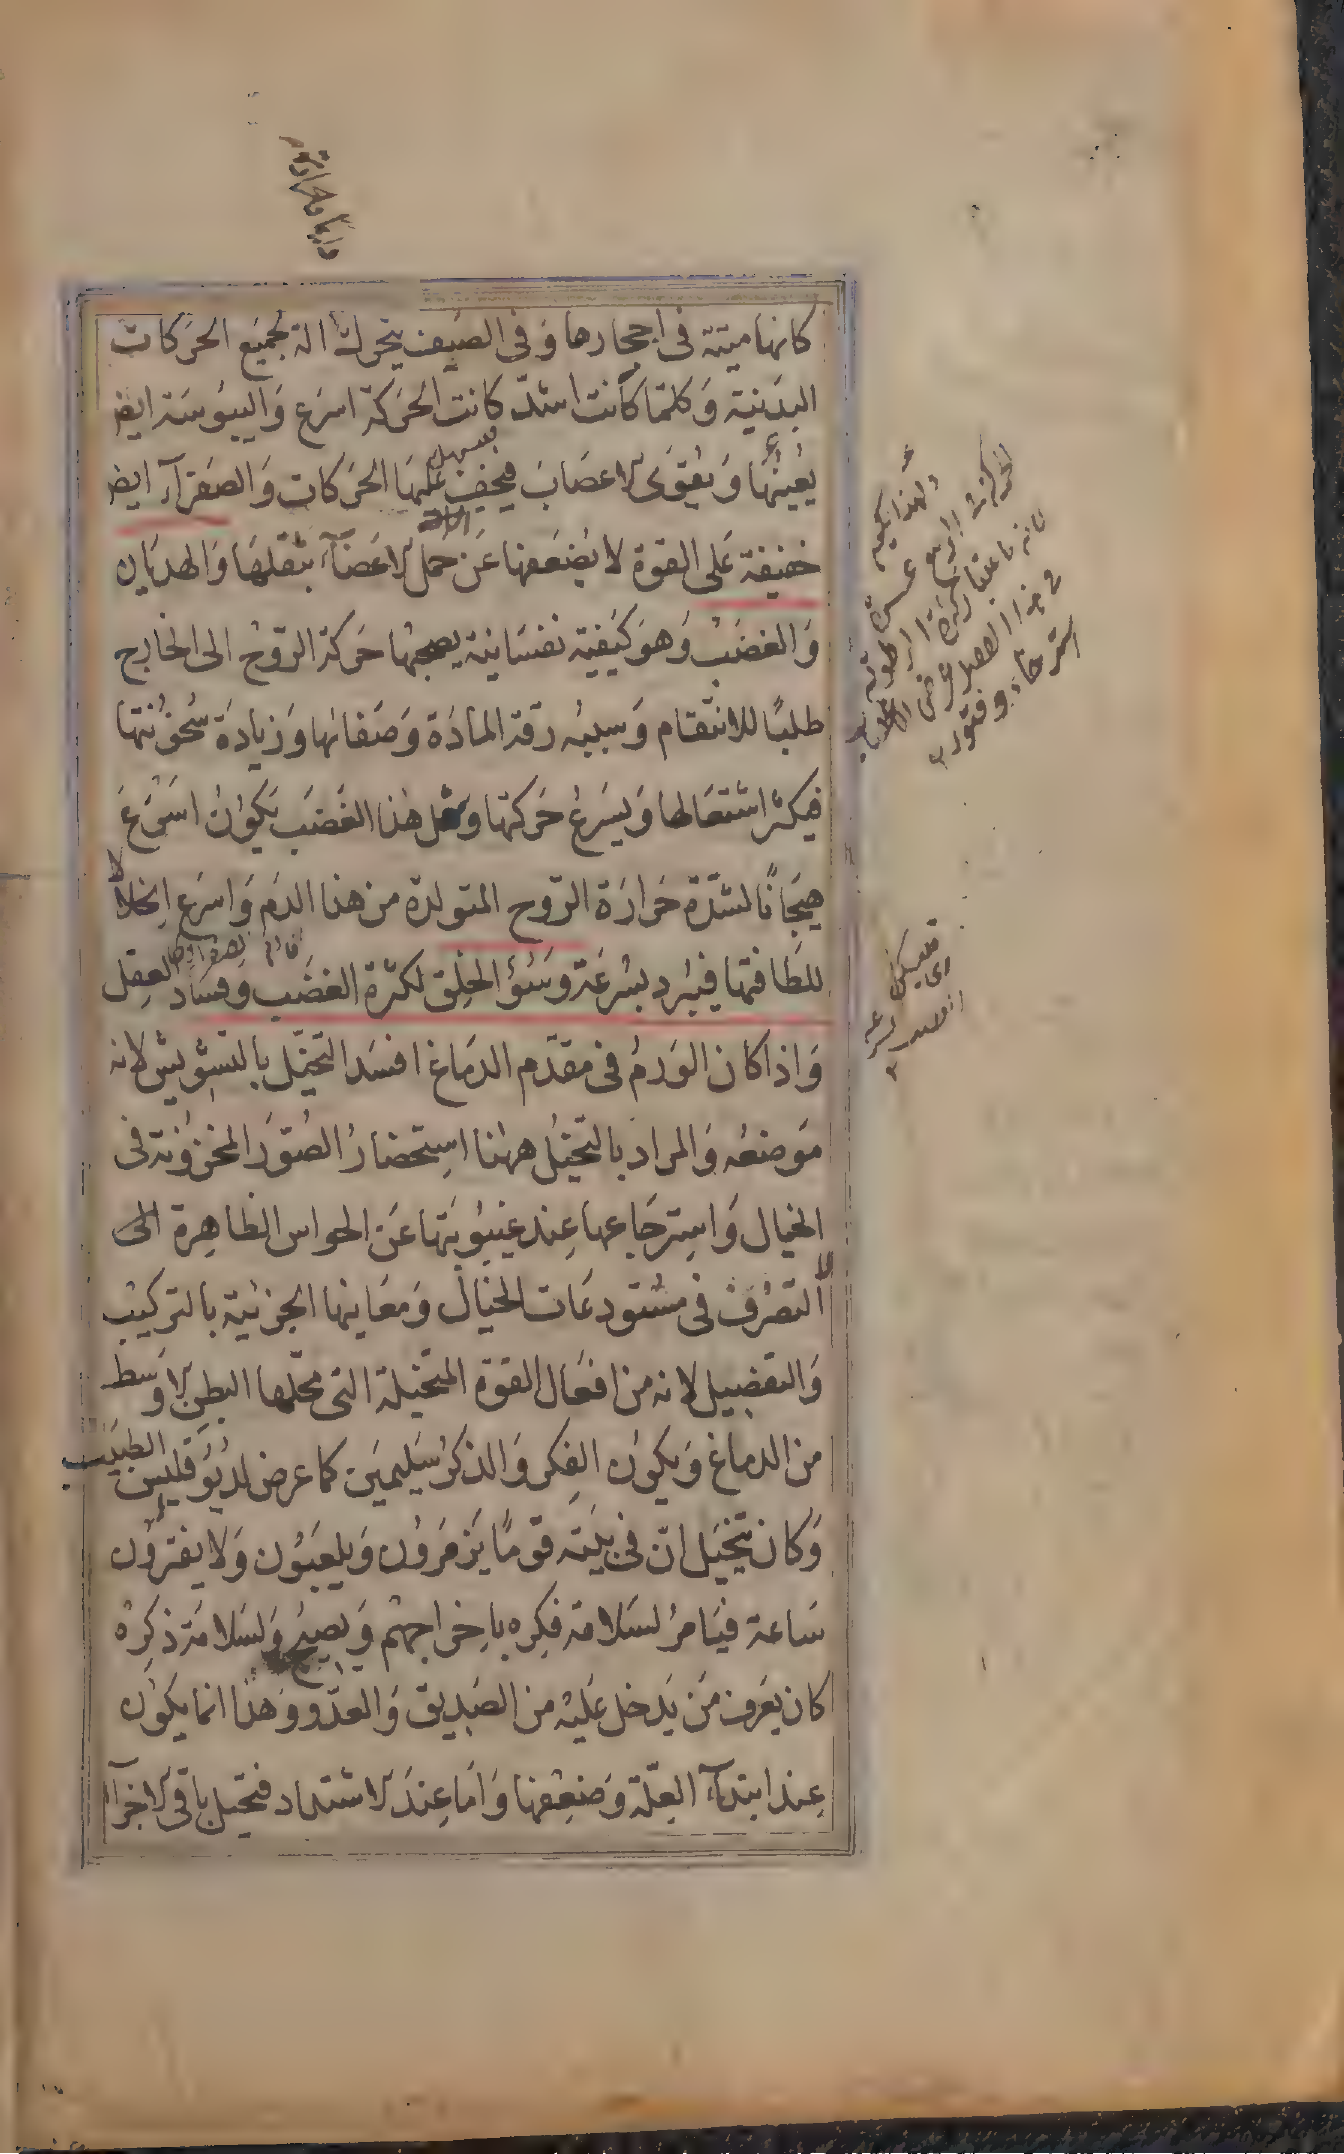 كانها ميتة فى اجحارها وَ فى الصيف يتحرك الة لجميع الحركات
البدنية وَ كلما كانت اشد كانت الحركة اسرع وَ اليبوسة ايض
يُعينها وَ يقوى الاعصابَ فيخف عليها الحركات وَ الصفرآء ايض
خفيفة عَلى القوة لا يضعفها عَن حمل الاعضآء بثقلها وَ الهذيان
وَ الغضبُ وَ هو كيفية نفسانية يصحبها حَركة الروح الى الخارج
طلبًا للانتقام وَ سببه رقة المادة وَ صَفائها وَ زيادة سُخونتها
فيكثر اشتعالها وَ يسرعُ حَركتها وَ مثل هذا الغضَب يكون اسرَع
هيجانًا لشدّة حَرارة الرّوح المتولدة من هذا الدَم وَ اسرَع انحلالا
للطافتها فيبرد بسُرعَة وسَوُء الخلق لكثرة الغضَب وَ فسَاد العقل
وَ اذا كان الوَرم فى مقدّم الدماغ افسَد التخيّل بالتشويش لانه
مَوضعه وَ المراد بالتخيّل ههنا استحضارُ الصُوَر المخزونة فى
الخيال وَ استرجاعها عِند غيبوبَتها عَن الحواس الظاهرة الى
التصرُف فى مسْتودعَات الخيال وَ معَانيها الجزئية بالتركيب
وَ التفضيل لانه من افعال القوة المتخيلة التى محلها البطن الاوسط
من الدماغ وَ يكون الفِكر وَ الذكر سَليمَين كما عرض لديوقليس الطبيب
وَ كان يتخيل انّ فى بيته قومًا يَزمرون وَ يلعبون وَ لا يفترون
سَاعة فيامرُ لسَلامة فكره باخراجهم وَ يصيح وَ لسَلامة ذكره
كان يعَرف مَن يَدخل عَليْه من الصَديق وَ العدُو وَ هذا انما يكون
عِند ابتدآء العلّة وَ ضعفها وَ امّا عِندَ الاشتداد فتختل باقى الاجزآء